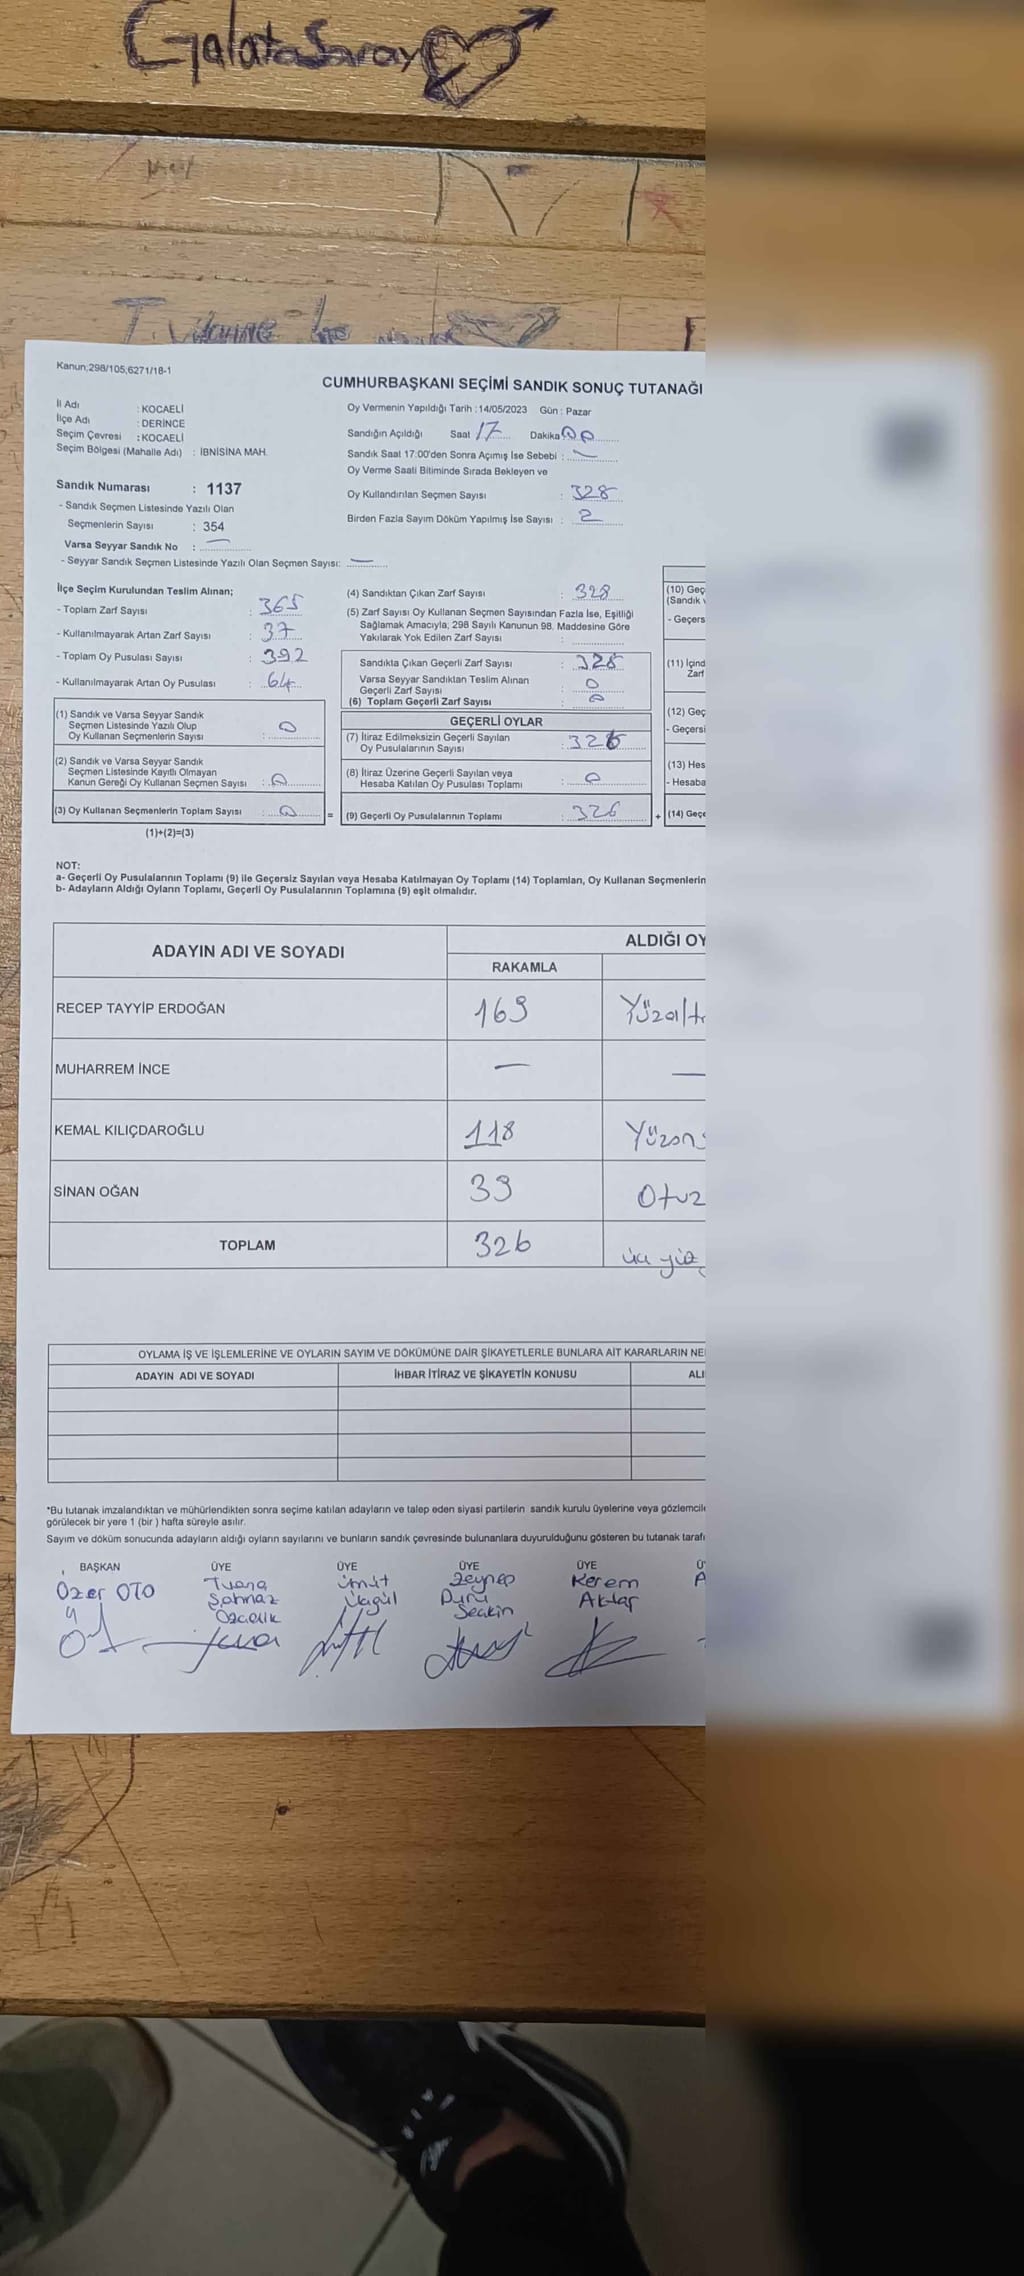 Galatasaray
Kanun;298/105,6271/18-1
CUMHURBAŞKANI SEÇİMİ SANDIK SONUÇ TUTANAĞI
İl Adı : KOCAELİ
İlçe Adı : DERİNCE
Seçim Çevresi : KOCAELİ
Seçim Bölgesi (Mahalle Adı) : İBNİSİNA MAH.
Oy Vermenin Yapıldığı Tarih : 14/05/2023 Gün : Pazar
Sandığın Açıldığı Saat 17 Dakika 00
Sandık Saat 17:00'den Sonra Açımış İse Sebebi : —
Oy Verme Saati Bitiminde Sırada Bekleyen ve
Oy Kullandırılan Seçmen Sayısı : 328
Birden Fazla Sayım Döküm Yapılmış İse Sayısı : 2
Sandık Numarası : 1137
- Sandık Seçmen Listesinde Yazılı Olan
Seçmenlerin Sayısı : 354
Varsa Seyyar Sandık No : —
- Seyyar Sandık Seçmen Listesinde Yazılı Olan Seçmen Sayısı: —
İlçe Seçim Kurulundan Teslim Alınan;
- Toplam Zarf Sayısı : 365
- Kullanılmayarak Artan Zarf Sayısı : 37
- Toplam Oy Pusulası Sayısı : 392
- Kullanılmayarak Artan Oy Pusulası : 64
(1) Sandık ve Varsa Seyyar Sandık
Seçmen Listesinde Yazılı Olup
Oy Kullanan Seçmenlerin Sayısı : 0
(2) Sandık ve Varsa Seyyar Sandık
Seçmen Listesinde Kayıtlı Olmayan
Kanun Gereği Oy Kullanan Seçmen Sayısı : 0
(3) Oy Kullanan Seçmenlerin Toplam Sayısı : 0 =
(1)+(2)=(3)
(4) Sandıktan Çıkan Zarf Sayısı : 328
(5) Zarf Sayısı Oy Kullanan Seçmen Sayısından Fazla İse, Eşitliği
Sağlamak Amacıyla, 298 Sayılı Kanunun 98. Maddesine Göre
Yakılarak Yok Edilen Zarf Sayısı :
Sandıkta Çıkan Geçerli Zarf Sayısı : 328
Varsa Seyyar Sandıktan Teslim Alınan
Geçerli Zarf Sayısı : 0
(6) Toplam Geçerli Zarf Sayısı : 0
GEÇERLİ OYLAR
(7) İtiraz Edilmeksizin Geçerli Sayılan
Oy Pusulalarının Sayısı : 326
(8) İtiraz Üzerine Geçerli Sayılan veya
Hesaba Katılan Oy Pusulası Toplamı : 0
(9) Geçerli Oy Pusulalarının Toplamı : 326 +
(10) Geç
(Sandık
- Geçers
(11) İçind
Zarf
(12) Geç
- Geçersi
(13) Hes
- Hesaba
(14) Geçe
NOT:
a- Geçerli Oy Pusulalarının Toplamı (9) ile Geçersiz Sayılan veya Hesaba Katılmayan Oy Toplamı (14) Toplamları, Oy Kullanan Seçmenlerin
b- Adayların Aldığı Oyların Toplamı, Geçerli Oy Pusulalarının Toplamına (9) eşit olmalıdır.
ADAYIN ADI VE SOYADI ALDIĞI OY
RAKAMLA
RECEP TAYYİP ERDOĞAN 169 Yüzaltı
MUHARREM İNCE — —
KEMAL KILIÇDAROĞLU 118 Yüzons
SİNAN OĞAN 39 Otuz
TOPLAM 326 üç yüz
OYLAMA İŞ VE İŞLEMLERİNE VE OYLARIN SAYIM VE DÖKÜMÜNE DAİR ŞİKAYETLERLE BUNLARA AİT KARARLARIN NE
ADAYIN ADI VE SOYADI İHBAR İTİRAZ VE ŞİKAYETİN KONUSU ALI
*Bu tutanak imzalandıktan ve mühürlendikten sonra seçime katılan adayların ve talep eden siyasi partilerin sandık kurulu üyelerine veya gözlemcile
görülecek bir yere 1 (bir ) hafta süreyle asılır.
Sayım ve döküm sonucunda adayların aldığı oyların sayılarını ve bunların sandık çevresinde bulunanlara duyurulduğunu gösteren bu tutanak tarafı
BAŞKAN ÜYE ÜYE ÜYE ÜYE
Özer OTO Tuana Ümit Zeynep Kerem
Şahnaz Duru Aktaş
Özçelik Seçkin